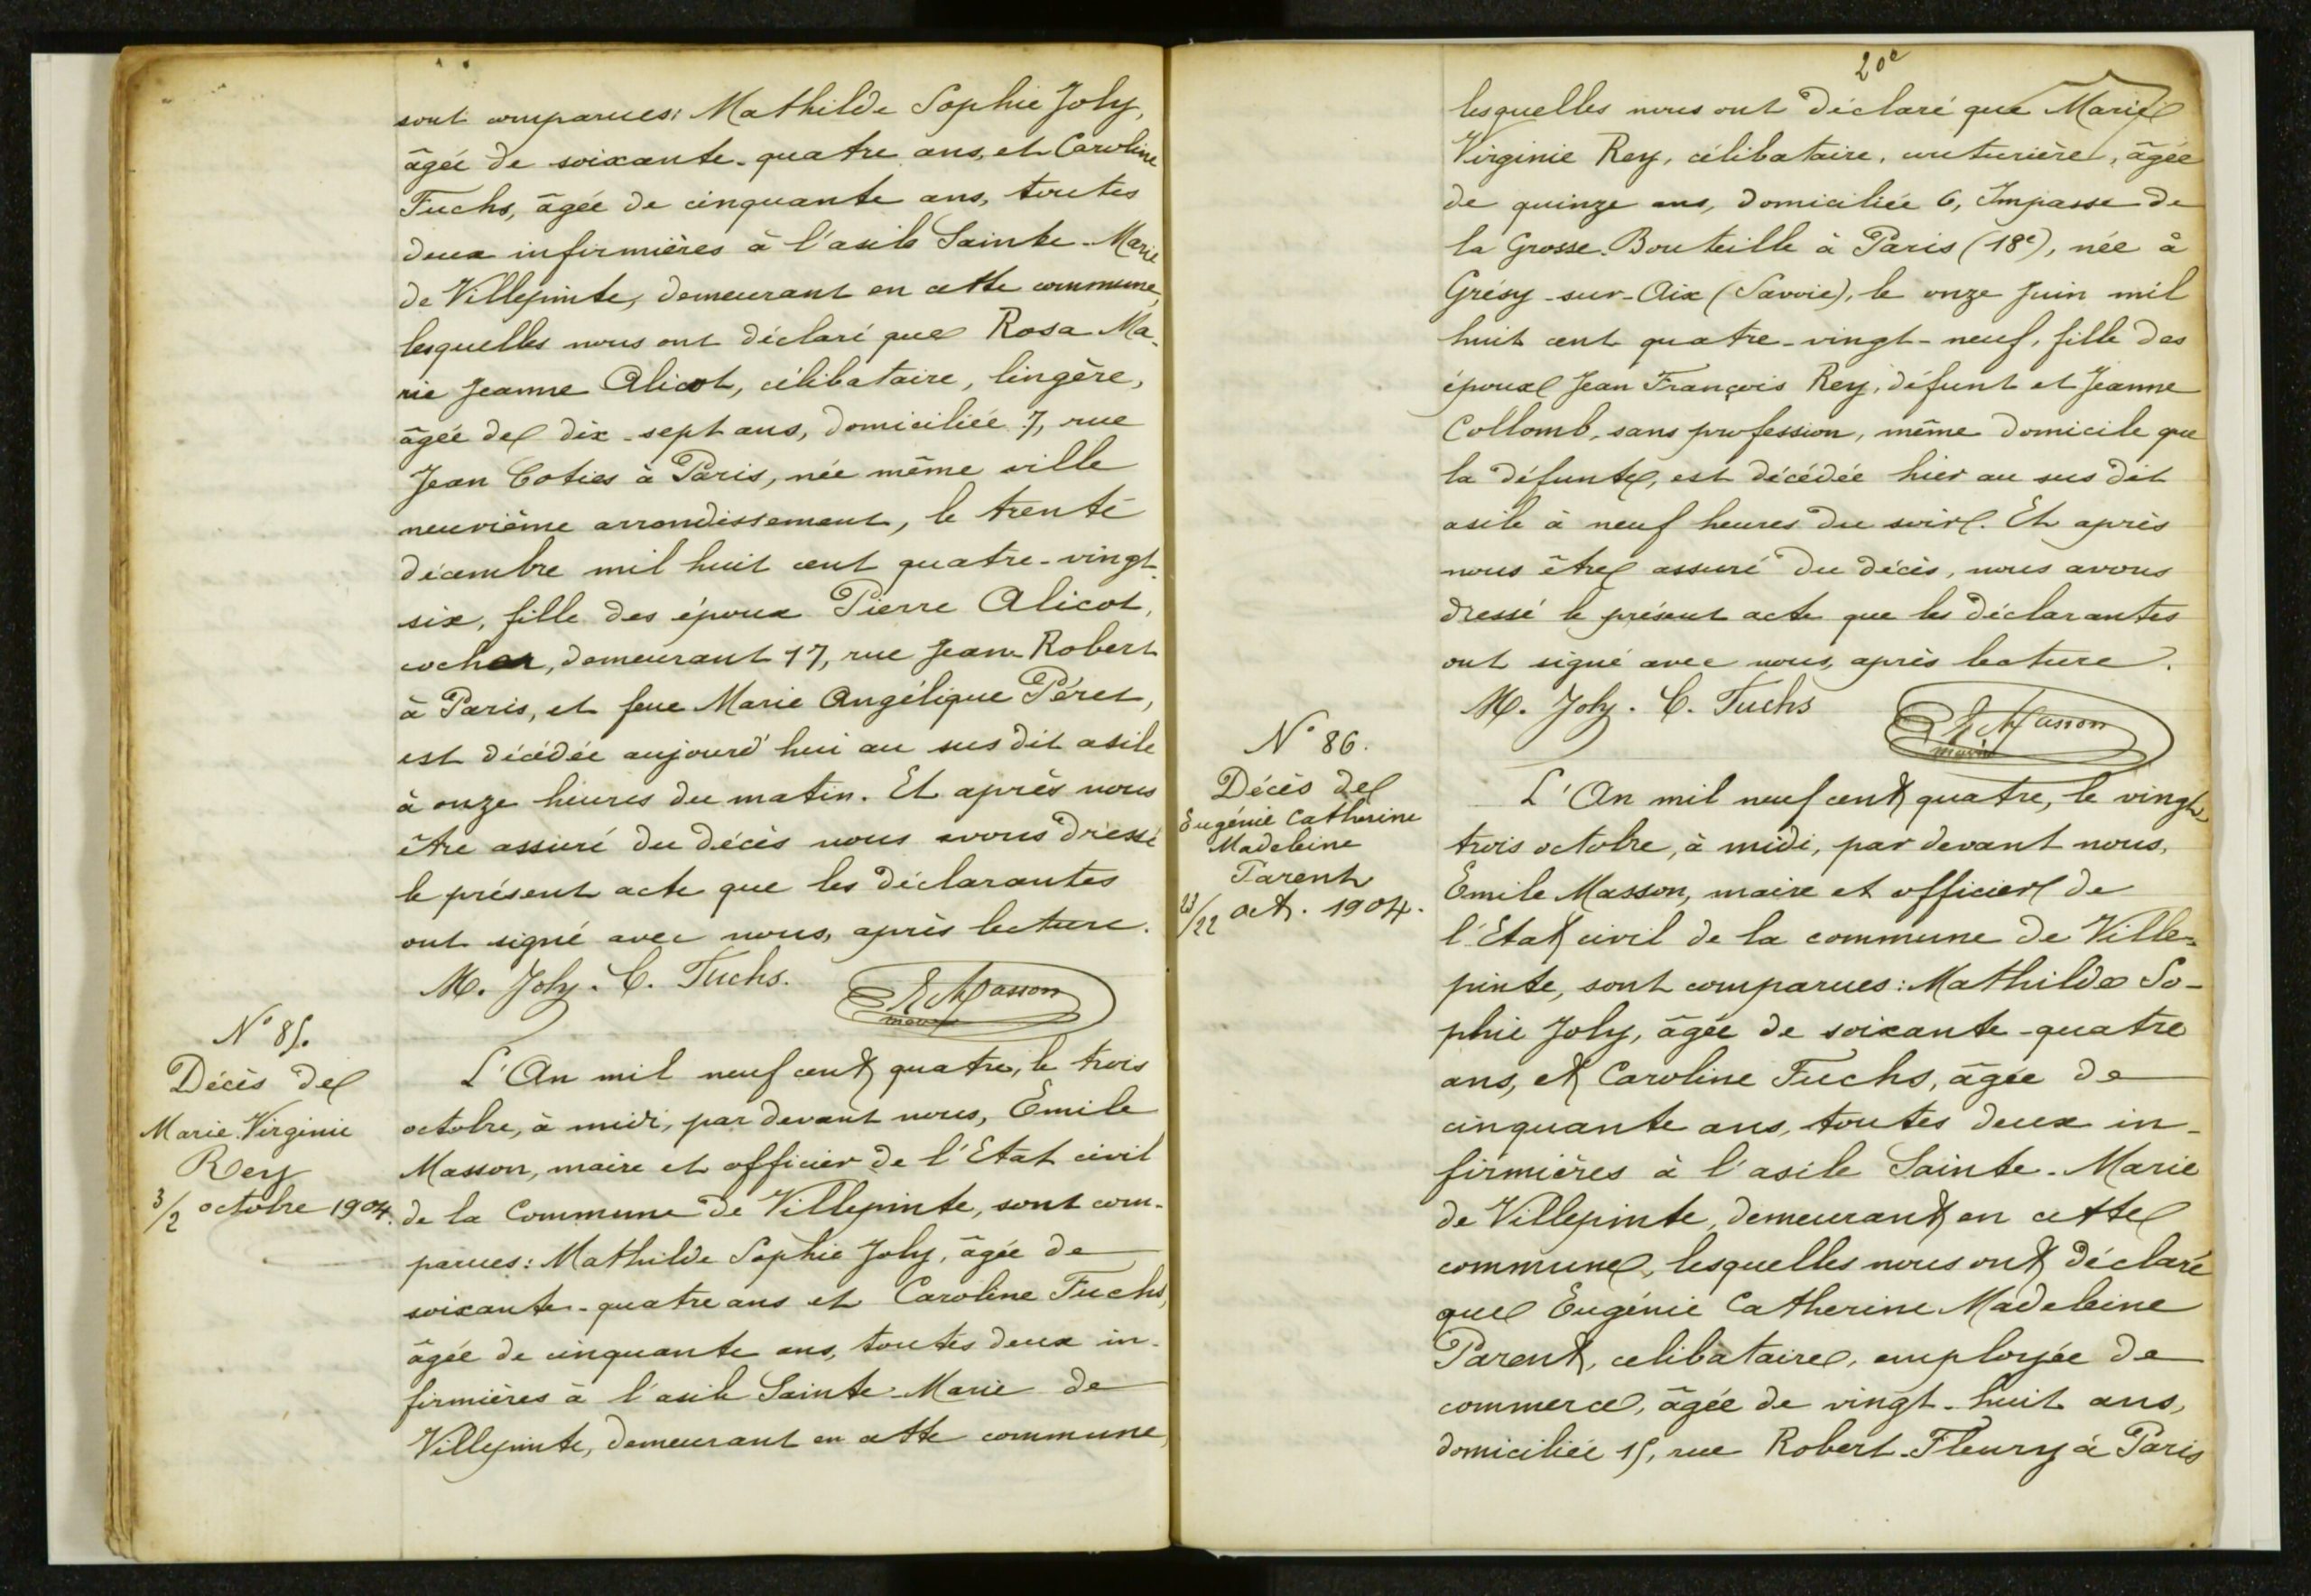 sont comparues: Mathilde Sophie Joly,
âgée de soixante-quatre ans, et Caroline
Fuchs, âgée de cinquante ans, toutes
deux infirmières à l'asile Sainte-Marie
de Villepinte, demeurant en cette commune,
lesquelles nous ont déclaré que Rosa Ma-
rie Jeanne Alicot, célibataire, lingère,
âgée de dix-sept ans, domiciliée 7, rue
Jean Coties à Paris, née même ville
neuvième arrondissement, le trente
décembre mil huit cent quatre-vingt-
six, fille des époux Pierre Alicot,
cocher, demeurant 17, rue Jean-Robert
à Paris, et feue Marie Angélique Péret,
est décédée aujourd'hui au sus dit asile
à onze heures du matin. Et après nous
être assuré du décès nous avons dressé
le présent acte que les déclarantes
ont signé avec nous, après lecture.
M. Joly. C. Fuchs. E Masson
maire
N° 85.
Décès de
Marie Virginie
Rey
3/2 octobre 1904.
L'An mil neuf cent quatre, le trois
octobre, à midi, par devant nous, Emile
Masson, maire et officier de l'Etat civil
de la Commune de Villepinte, sont com-
parues: Mathilde Sophie Joly, âgée de
soixante-quatre ans et Caroline Fuchs,
âgée de cinquante ans, toutes deux in-
firmières à l'asile Sainte-Marie de
Villepinte, demeurant en cette commune,
20e
lesquelles nous ont déclaré que Marie
Virginie Rey, célibataire, couturière, âgée
de quinze ans, domiciliée 6, Impasse de
la Grosse-Bouteille à Paris (18e), née à
Grésy-sur-Aix (Savoie), le onze Juin mil
huit cent quatre-vingt-neuf, fille des
époux Jean François Rey, défunt et Jeanne
Collomb, sans profession, même domicile que
la défunte, est décédée hier au sus dit
asile à neuf heures du soir. Et après
nous être assuré du décès, nous avons
dressé le présent acte que les déclarantes
ont signé avec nous, après lecture.
M. Joly. C. Fuchs E Masson
maire
N° 86.
Décès de
Eugénie Catherine
Madeleine
Parent
23/22 oct. 1904.
L'An mil neuf cent quatre, le vingt
trois octobre, à midi, par devant nous,
Emile Masson, maire et officier de
l'Etat civil de la commune de Ville-
pinte, sont comparues: Mathilde So-
phie Joly, âgée de soixante-quatre
ans, et Caroline Fuchs, âgée de
cinquante ans, toutes deux in-
firmières à l'asile Sainte-Marie
de Villepinte, demeurant en cette
commune, lesquelles nous ont déclaré
que Eugénie Catherine Madeleine
Parent, celibataire, employée de
commerce, âgée de vingt-huit ans,
domiciliée 15, rue Robert-Fleury à Paris